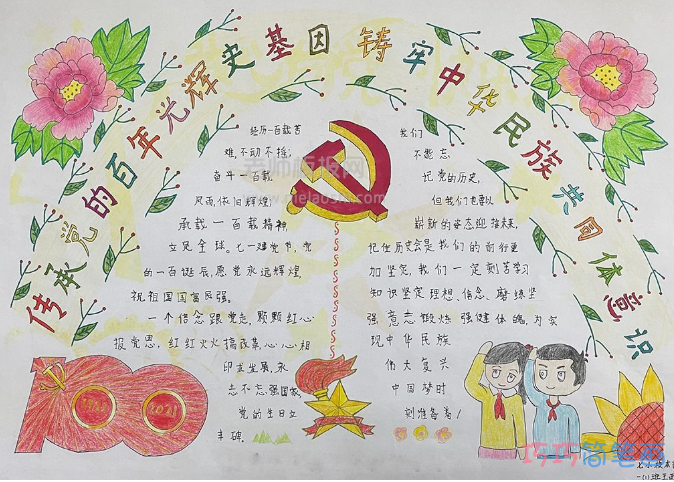 传承党的百年光辉史基因 铸牢中华民族共同体意识
经历一百载苦
难,不动不摇,
奋斗一百载
风雨依旧辉煌,
承载一百载精神,
立足全球。七一建党节,党
的一百诞辰,愿党永远辉煌,
祝祖国国富民强。
一个信念跟党走,颗颗红心
报党恩,红红火火搞改革,心心相
印求发展,永
志不忘强国家,
党的生日立
丰碑。
我们
不能忘
记党的历史,
但我们也要以
崭新的姿态迎接未来,
记住历史会是我们的前行更
加坚定,我们一定刻苦学习
知识坚定理想、信念、磨练坚
强意志锻炼强健体魄,为实
现中华民族
伟大复兴
中国梦时
刻准备着!
1921
2021
老师板报网
巧巧简笔画